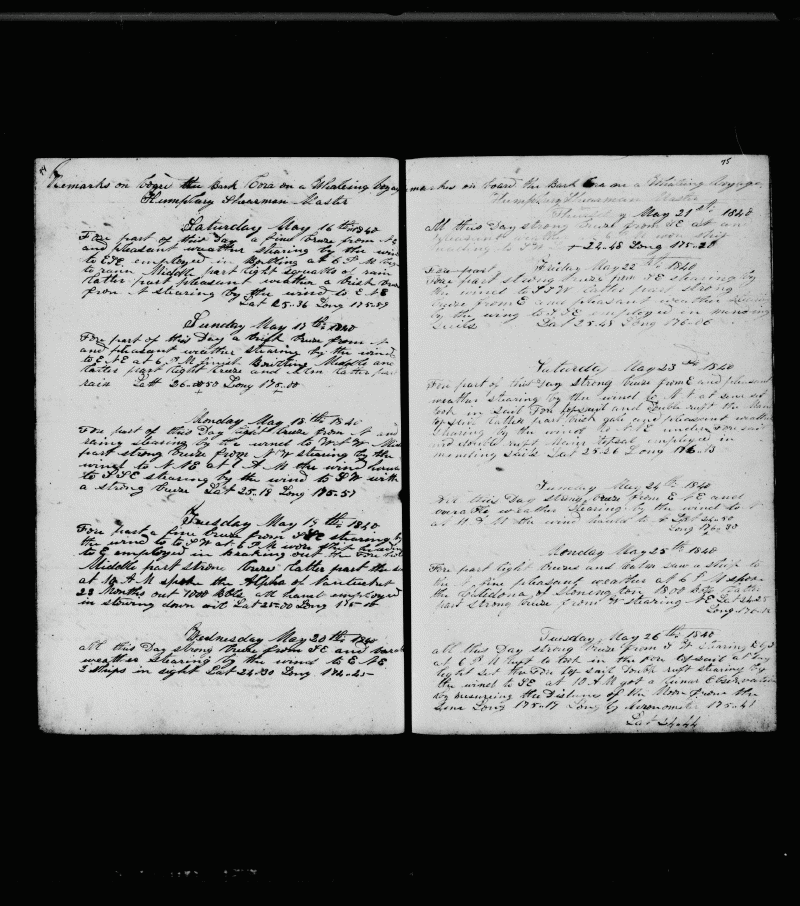 Remarks on board the Bark Cora on a Whaleing Voyage
Humphry Shearman Master
Saturday May 16th 1840
Fore part of this Day a fine breze from N E
and pleasant weather stearing by the wind
to E S E employed in Boilling at 6 P M
to rann Middle part light squalls of rain
latter part pleasant weather a brisk breze
from N stearing by the wind to E N E
Lat 25-36 Long 175-
Sunday May 17th 1840
Fore part of this Day a brisk breze from N
and pleasant weather stearing by the wind
to E N E at 6 P M finish Boilling Middle and
latter part light breze and latter part
rain Latt 26- Long 175-00
Monday May 18th 1840
Fore part of this Day light breze from N and
raing stearing by the wind to W N W Middle
part strong breze from N W stearing by the
wind to N N E at 1 A M the wind hauld
to S S E stearing by the wind to S W with
a strong breze Lat 25-18 Long 175-57
Tuesday May 19th 1840
Fore part a fine breze from S S E stearing by
the wind to S W at 6 P M wore ship heading
to E employed in breaking out the Fore hold
Middle part strong breze latter part the same
at 10 A M spoke the Alpha of Nantucket
23 Months out 1000 bbls all hands employed
in stowing down oil Lat 25-00 Long 175-
Wednesday May 20th 1840
all this Day strong breze from S E and
weather stearing by the wind to E N E
3 ships in sight Lat 24-30 Long 174-45
75
Remarks on board the Bark Cora on a Whaleing Voyage
Humphry Shearman Master
Thursday May 21st 1840
All this Day strong breze from S E
pleasant weather ship
heading to S W + 24-48 Long 175-20
Friday May 22nd 1840
Fore part strong breze from S E stearing by
the wind to S S W latter part strong
breze from E and pleasant weather stearing
by the wind to S S E employed in mending
Sails Lat 25-43 Long 176-06
Saturday May 23rd 1840
Fore part of this Day strong breze from E and pleasant
weather stearing by the wind to N N E at sun set
took in sail Fore topsail and Double reeft the Main
topsail latter part brisk gale and pleasant weather
stearing by the wind to N N E under Fore sail
and double reeft Main topsail employed in
mending Sails Lat 25-26 Long 176-13
Sunday May 24th 1840
All this Day strong breze from E N E and
weather stearing by the wind to N
at 12 M the wind hauld to Lat 24-50
Long 176-30
Monday May 25th 1840
Fore part light brezes and latter saw a ship to
the N fine pleasant weather at 6 P M spoke
the Caledona of Stonington 1800 bbls latter
part strong breze from N stearing N E Lat 24-25
Long 176-
Tuesday May 26th 1840
all this Day strong breze from N stearing E by S
at 6 P M luft to took in the Fore top sail at day
light set the Fore top sail Double reeft stearing by
the wind to S E at 10 A M got a Lunar Observation
by measuring the Distance of the Moon from the
Sun Long 175-17 Long by Cronometer 175-41
Lat 24-44